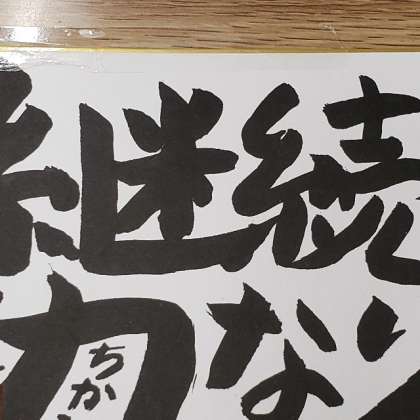 継続
力な
ちから